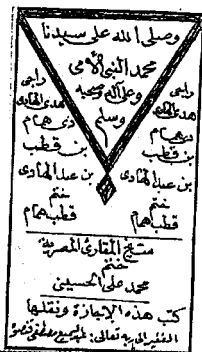 وصلى الله على سيدنا
محمد النبي الأمي
وعلى آله وصحبه
وسلم
راجى
هدى الهادى
دى همام
بن قطب
بن عبدالهادى
ختم
قطب همام
راجى
هدى الهادى
دى همام
بن قطب
بن عبدالهادى
ختم
قطب همام
شيخ المقارئ المصرية
ختم
محمد على الحسينى
كتب هذه الإجازة ونقلها
الفقير إلى ربه تعالى: